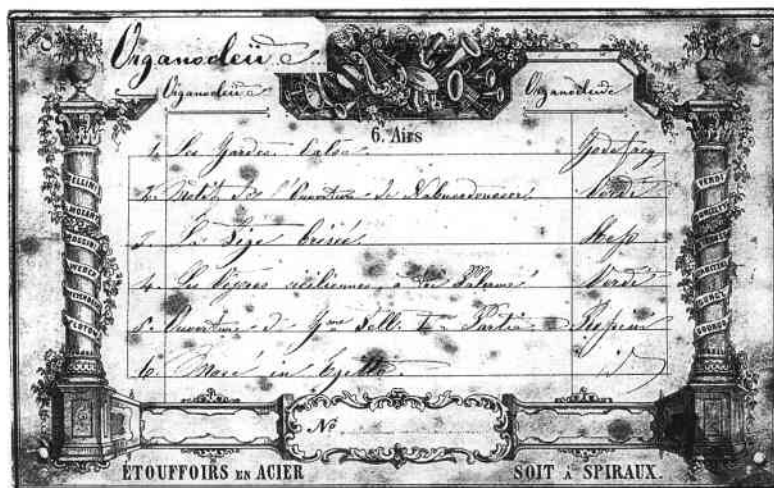 Organocleide
Organocleide Organocleide
6. Airs
1. Les Gardes Valse. Godefroy
2. Motif de l'Ouverture de Nabucodonosor. Verdi
3. La Tige brisée. Hess
4. Les Vêpres siciliennes, à Palerme Verdi
5. Ouverture d. Gme Tell. 1e Partie Rossini
6. Mosé in Egitto. id
BELLINI
MOZART
ROSSINI
WEBER
FLOTOW
VERDI
DONIZETTI
GUNGL
GOUNOD
No
ÉTOUFFOIRS EN ACIER SOIT À SPIRAUX.